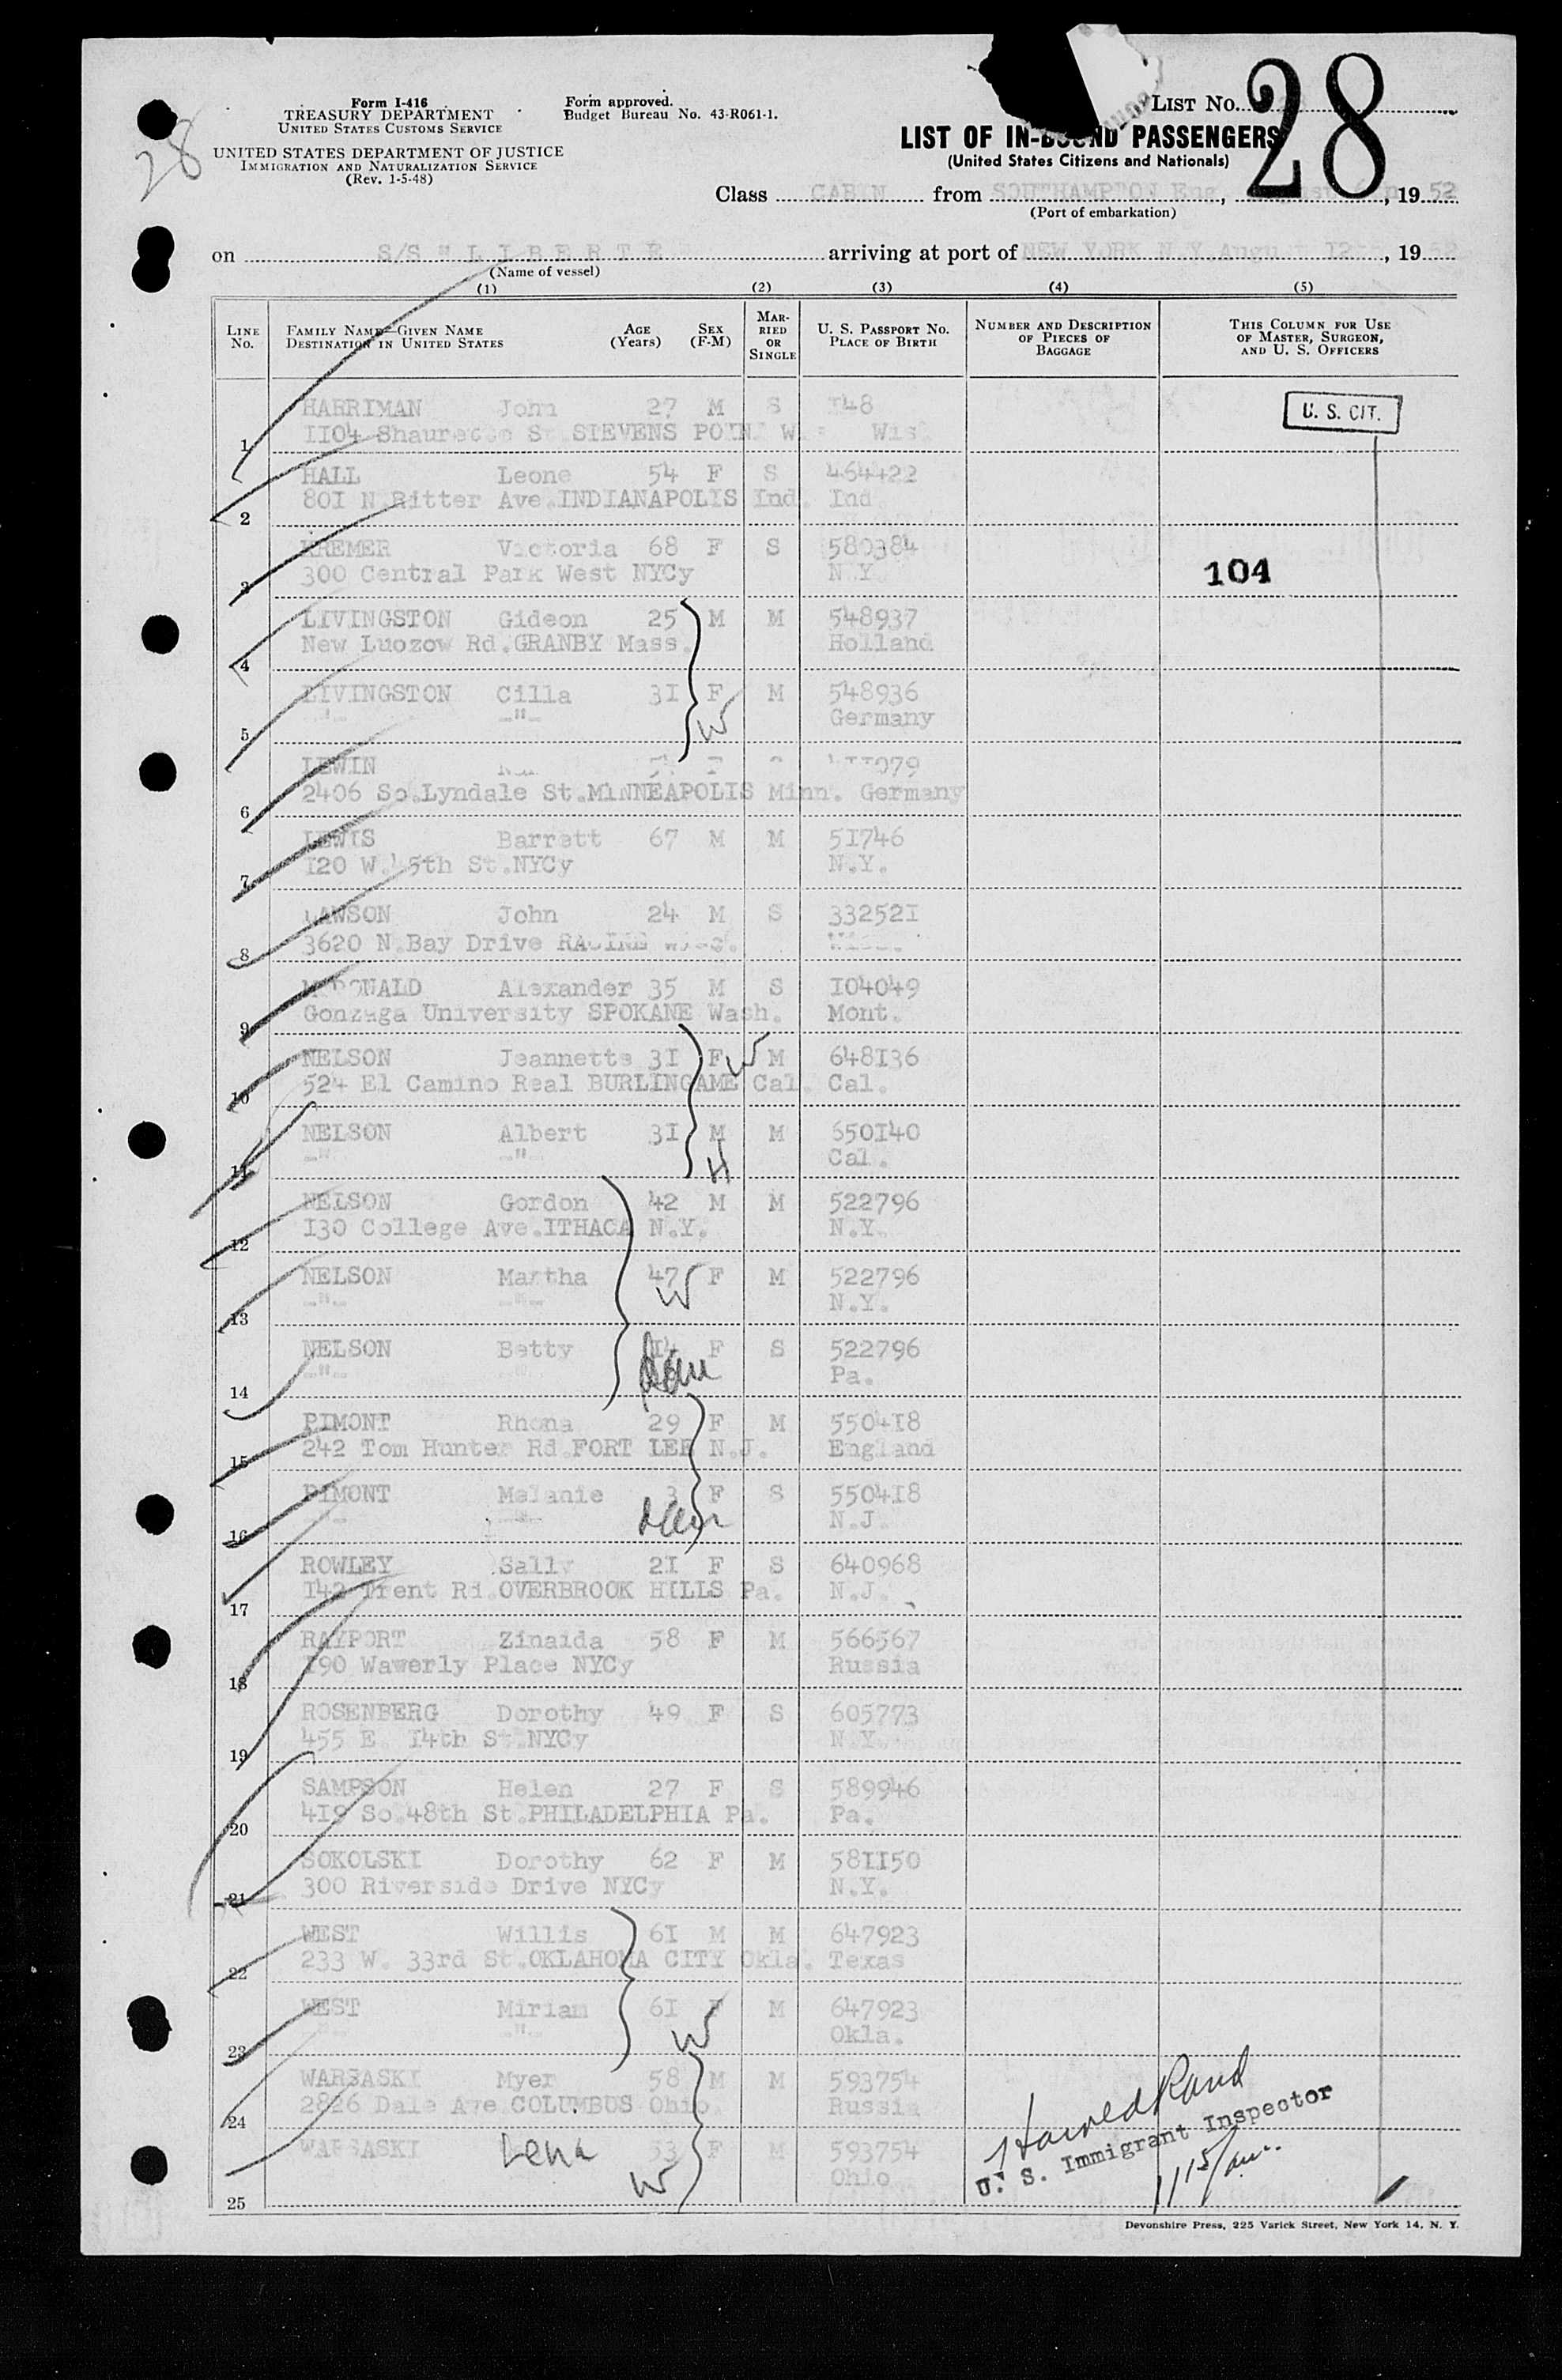 28
Form I-416
TREASURY DEPARTMENT
UNITED STATES CUSTOMS SERVICE
UNITED STATES DEPARTMENT OF JUSTICE
IMMIGRATION AND NATURALIZATION SERVICE
(Rev. 1-5-48)
Form approved.
Budget Bureau No. 43-R061-1.
LIST No. 28
LIST OF IN-BOUND PASSENGERS
(United States Citizens and Nationals)
Class CABIN from SOUTHAMPTON Eng, , 19 52
(Port of embarkation)
on S/S "LIBERTE" arriving at port of NEW YORK N.Y. August 12th, 19 52
(Name of vessel)
(1) (2) (3) (4) (5)
LINE No. FAMILY NAME—GIVEN NAME DESTINATION IN UNITED STATES AGE (Years) SEX (F-M) MARRIED OR SINGLE U. S. PASSPORT NO. PLACE OF BIRTH NUMBER AND DESCRIPTION OF PIECES OF BAGGAGE THIS COLUMN FOR USE OF MASTER, SURGEON, AND U. S. OFFICERS
HARRIMAN John 27 M S 148 U. S. CIT.
1 1104 St STEVENS POINT Wis
2 HALL Leone 54 F S 464422
801 N Ritter Ave.INDIANAPOLIS Ind. Ind
3 KREMER Victoria 68 F S 580384
300 Central Park West NYCy N.Y. 104
4 LIVINGSTON Gideon 25 M M 548937
New Luozow Rd.GRANBY Mass. Holland
5 LIVINGSTON Cilla 31 F W M 548936
-"- -"- Germany
6 LEWIN F 079
2406 So.Lyndale St.MINNEAPOLIS Minn. Germany
7 LEWIS Barrett 67 M M 51746
120 W.45th St.NYCy N.Y.
8 LAWSON John 24 M S 332521
3620 N.Bay Drive RACINE Wisc.
9 McDONALD Alexander 35 M S 104049
Gonzaga University SPOKANE Wash. Mont.
10 NELSON Jeannette 31 F W M 648136
524 El Camino Real BURLINGAME Cal. Cal.
11 NELSON Albert 31 M H M 650140
-"- -"- Cal.
12 NELSON Gordon 42 M M 522796
130 College Ave.ITHACA N.Y. N.Y.
13 NELSON Martha 47 W F M 522796
-"- -"- N.Y.
14 NELSON Betty 14 F S 522796
-"- Pa.
15 PIMONT Rhona 29 F M 550418
242 Tom Hunter Rd FORT LEE N.J. England
16 PIMONT Melanie 3 F S 550418
-"- N.J.
17 ROWLEY Sally 21 F S 640968
142 Trent Rd.OVERBROOK HILLS Pa. N.J.
18 RAYPORT Zinaida 58 F M 566567
190 Wawerly Place NYCy Russia
19 ROSENBERG Dorothy 49 F S 605773
455 E. 14th St.NYCy N.Y.
20 SAMPSON Helen 27 F S 589946
419 So.48th St.PHILADELPHIA Pa. Pa.
21 SOKOLSKI Dorothy 62 F M 581150
300 Riverside Drive NYCy N.Y.
22 WEST Willis 61 M M 647923
233 W. 33rd St.OKLAHOMA CITY Okla. Texas
23 WEST Miriam 61 F W M 647923
-"- Okla.
24 WARSASKI Myer 58 M M 593754
2826 Dale Ave COLUMBUS Ohio. Russia
25 WARSASKI Lena 53 W F M 593754
Ohio
U. S. Immigrant Inspector
Devonshire Press, 225 Varick Street, New York 14, N. Y.